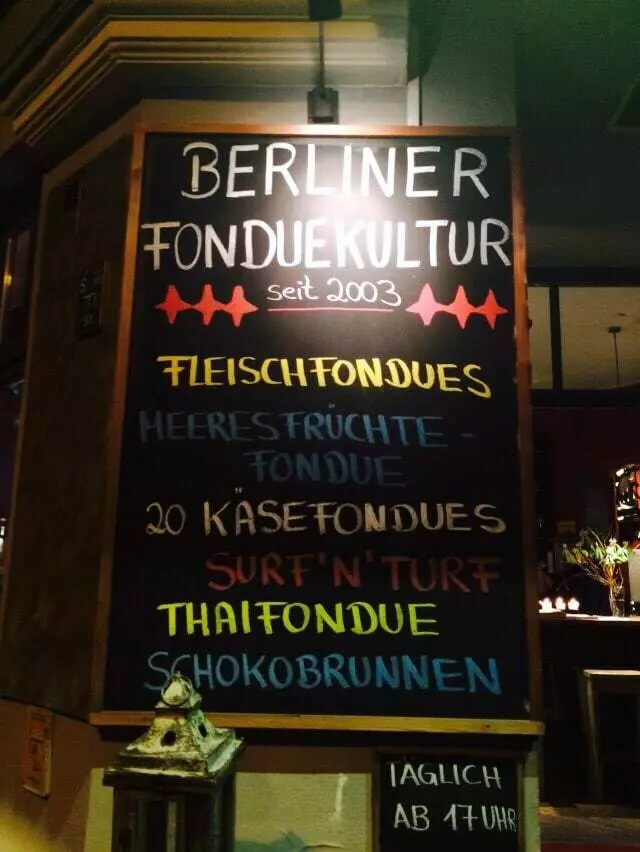 BERLINER
FONDUEKULTUR
seit 2003
FLEISCHFONDUES
MEERESFRÜCHTE-
FONDUE
20 KÄSEFONDUES
SURF'N'TURF
THAIFONDUE
SCHOKOBRUNNEN
TÄGLICH
AB 17 UHR